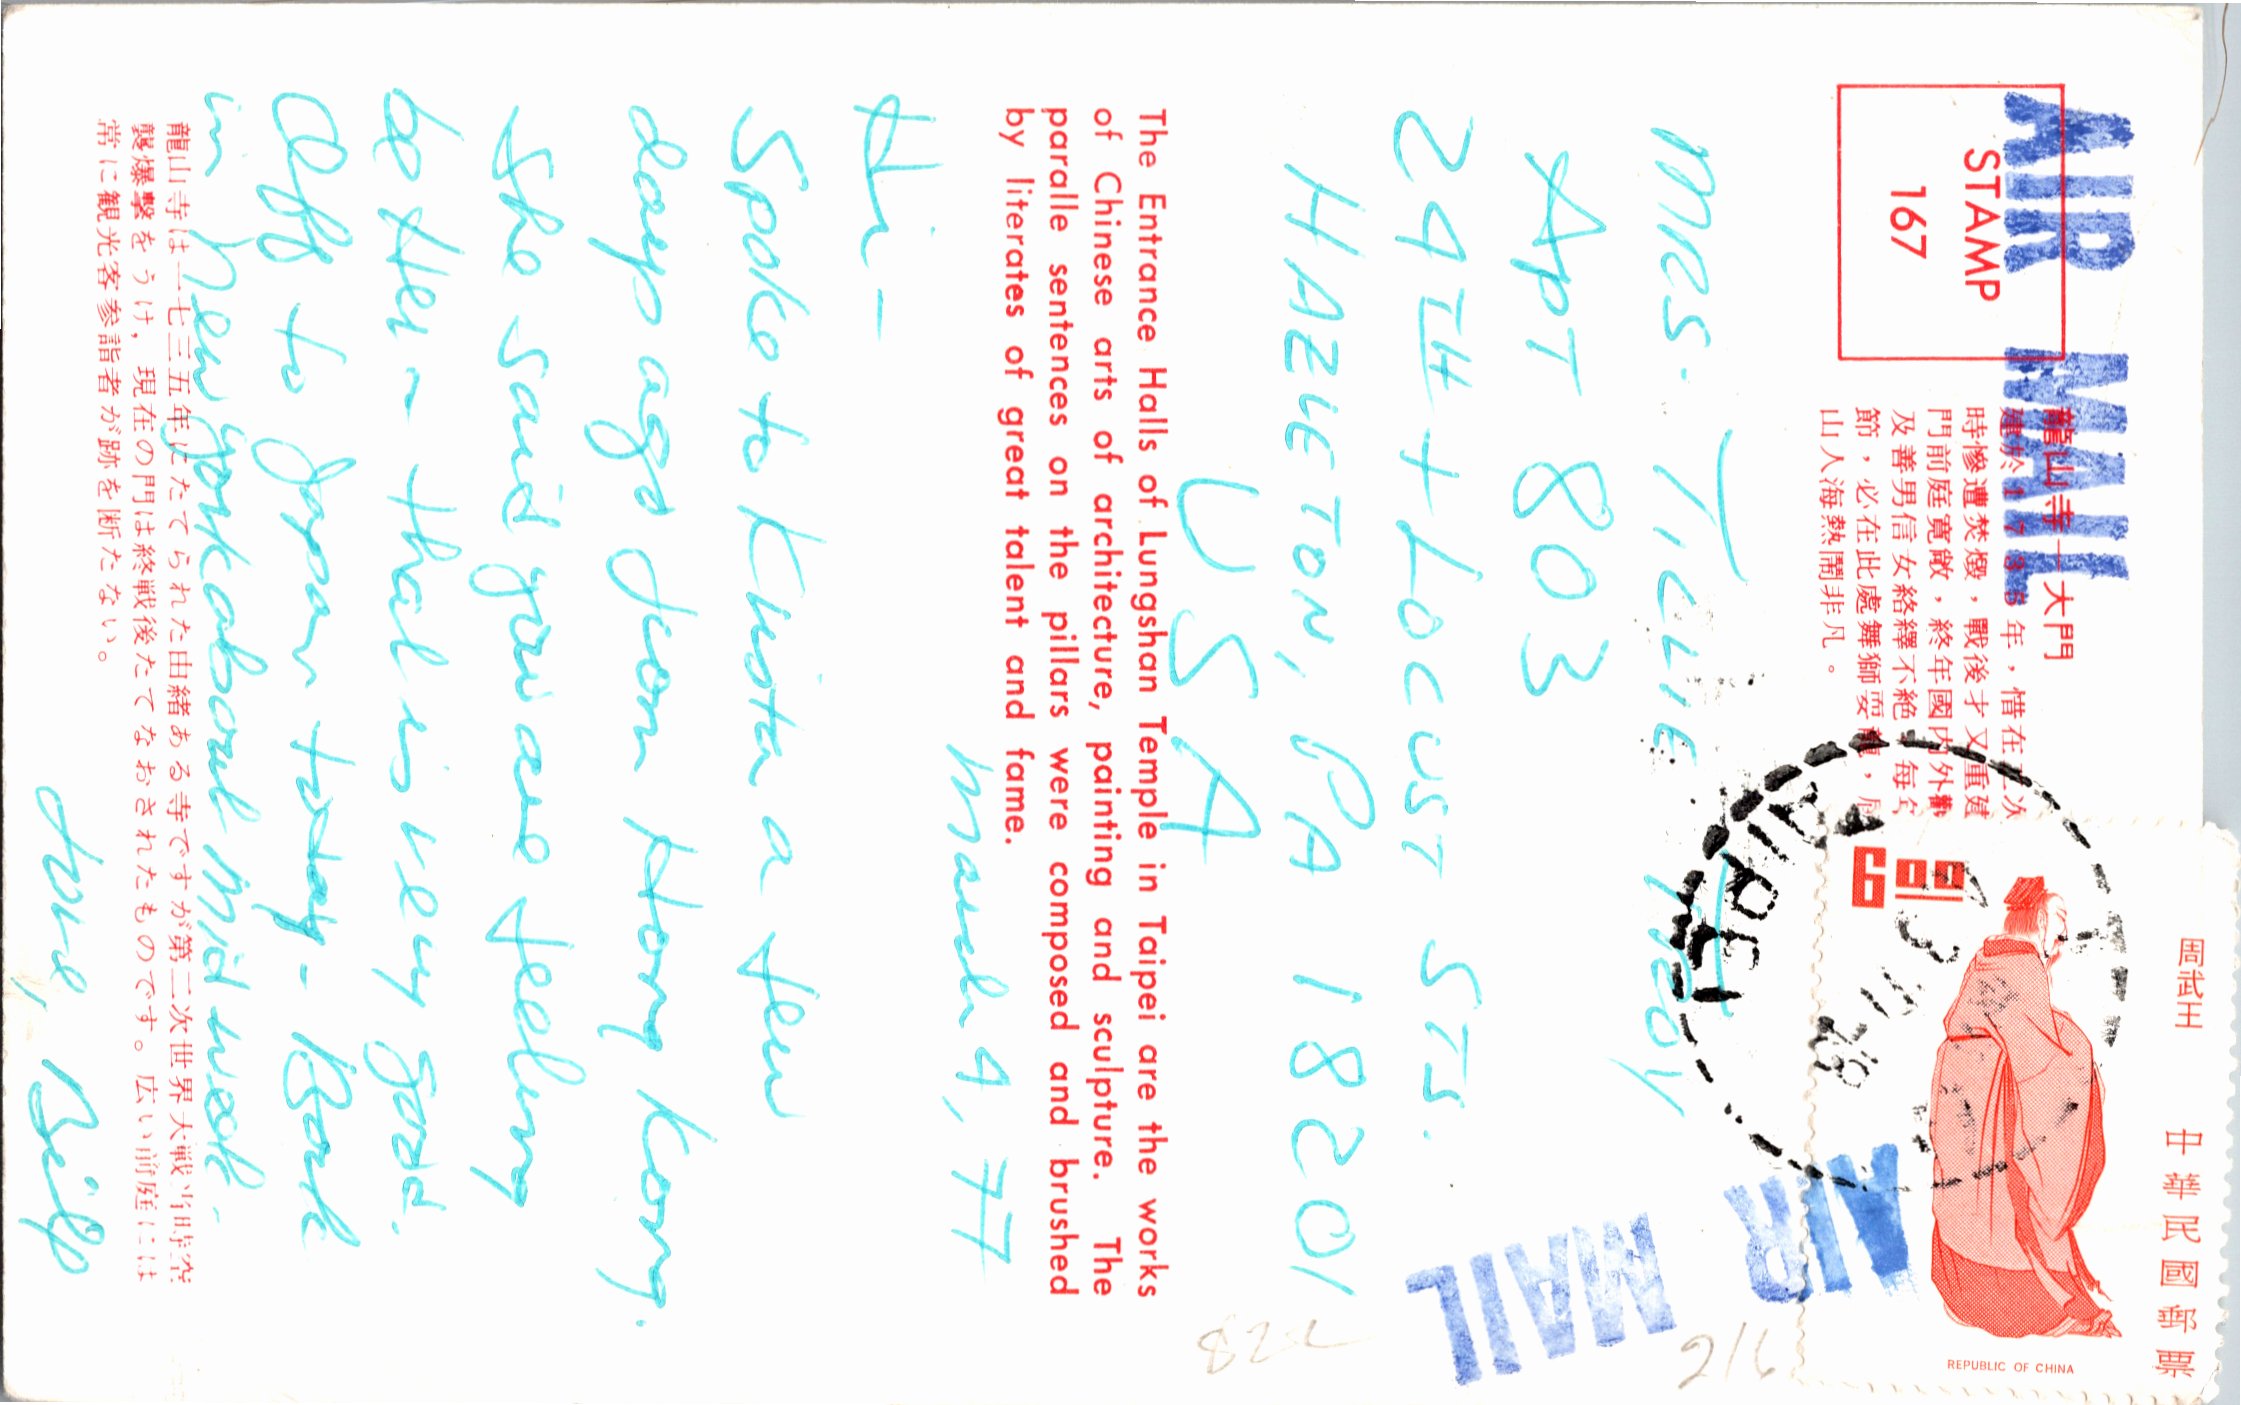 AIR MAIL
STAMP
167
龍山寺—大門
建於1735年，惜在二次
時慘遭焚燬，戰後才又重建
門前庭寬敞，終年國內外觀
及善男信女絡繹不絕，每
節，必在此處舞獅耍龍，
山人海熱鬧非凡。
周武王
中華民國郵票
REPUBLIC OF CHINA
900
TAIPEI
AIR MAIL
216
MRS. TILLIE
APT 803
24TH + LOCUST STS.
HAZLETON, PA 18201
USA
822
The Entrance Halls of Lungshan Temple in Taipei are the works
of Chinese arts of architecture, painting and sculpture. The
paralle sentences on the pillars were composed and brushed
by literates of great talent and fame.
March 4, 77
Hi -
Spoke to Krista a few
days ago from Hong Kong.
She said you are feeling
better - that is very good.
Off to Japan today - Back
in New York about mid week.
Love, Bill
龍山寺は一七三五年にたてられた由緒ある寺ですが第二次世界大戦当時空
襲爆撃をうけ，現在の門は終戦後たてなおされたものです。広い前庭には
常に観光客参詣者が跡を断たない。